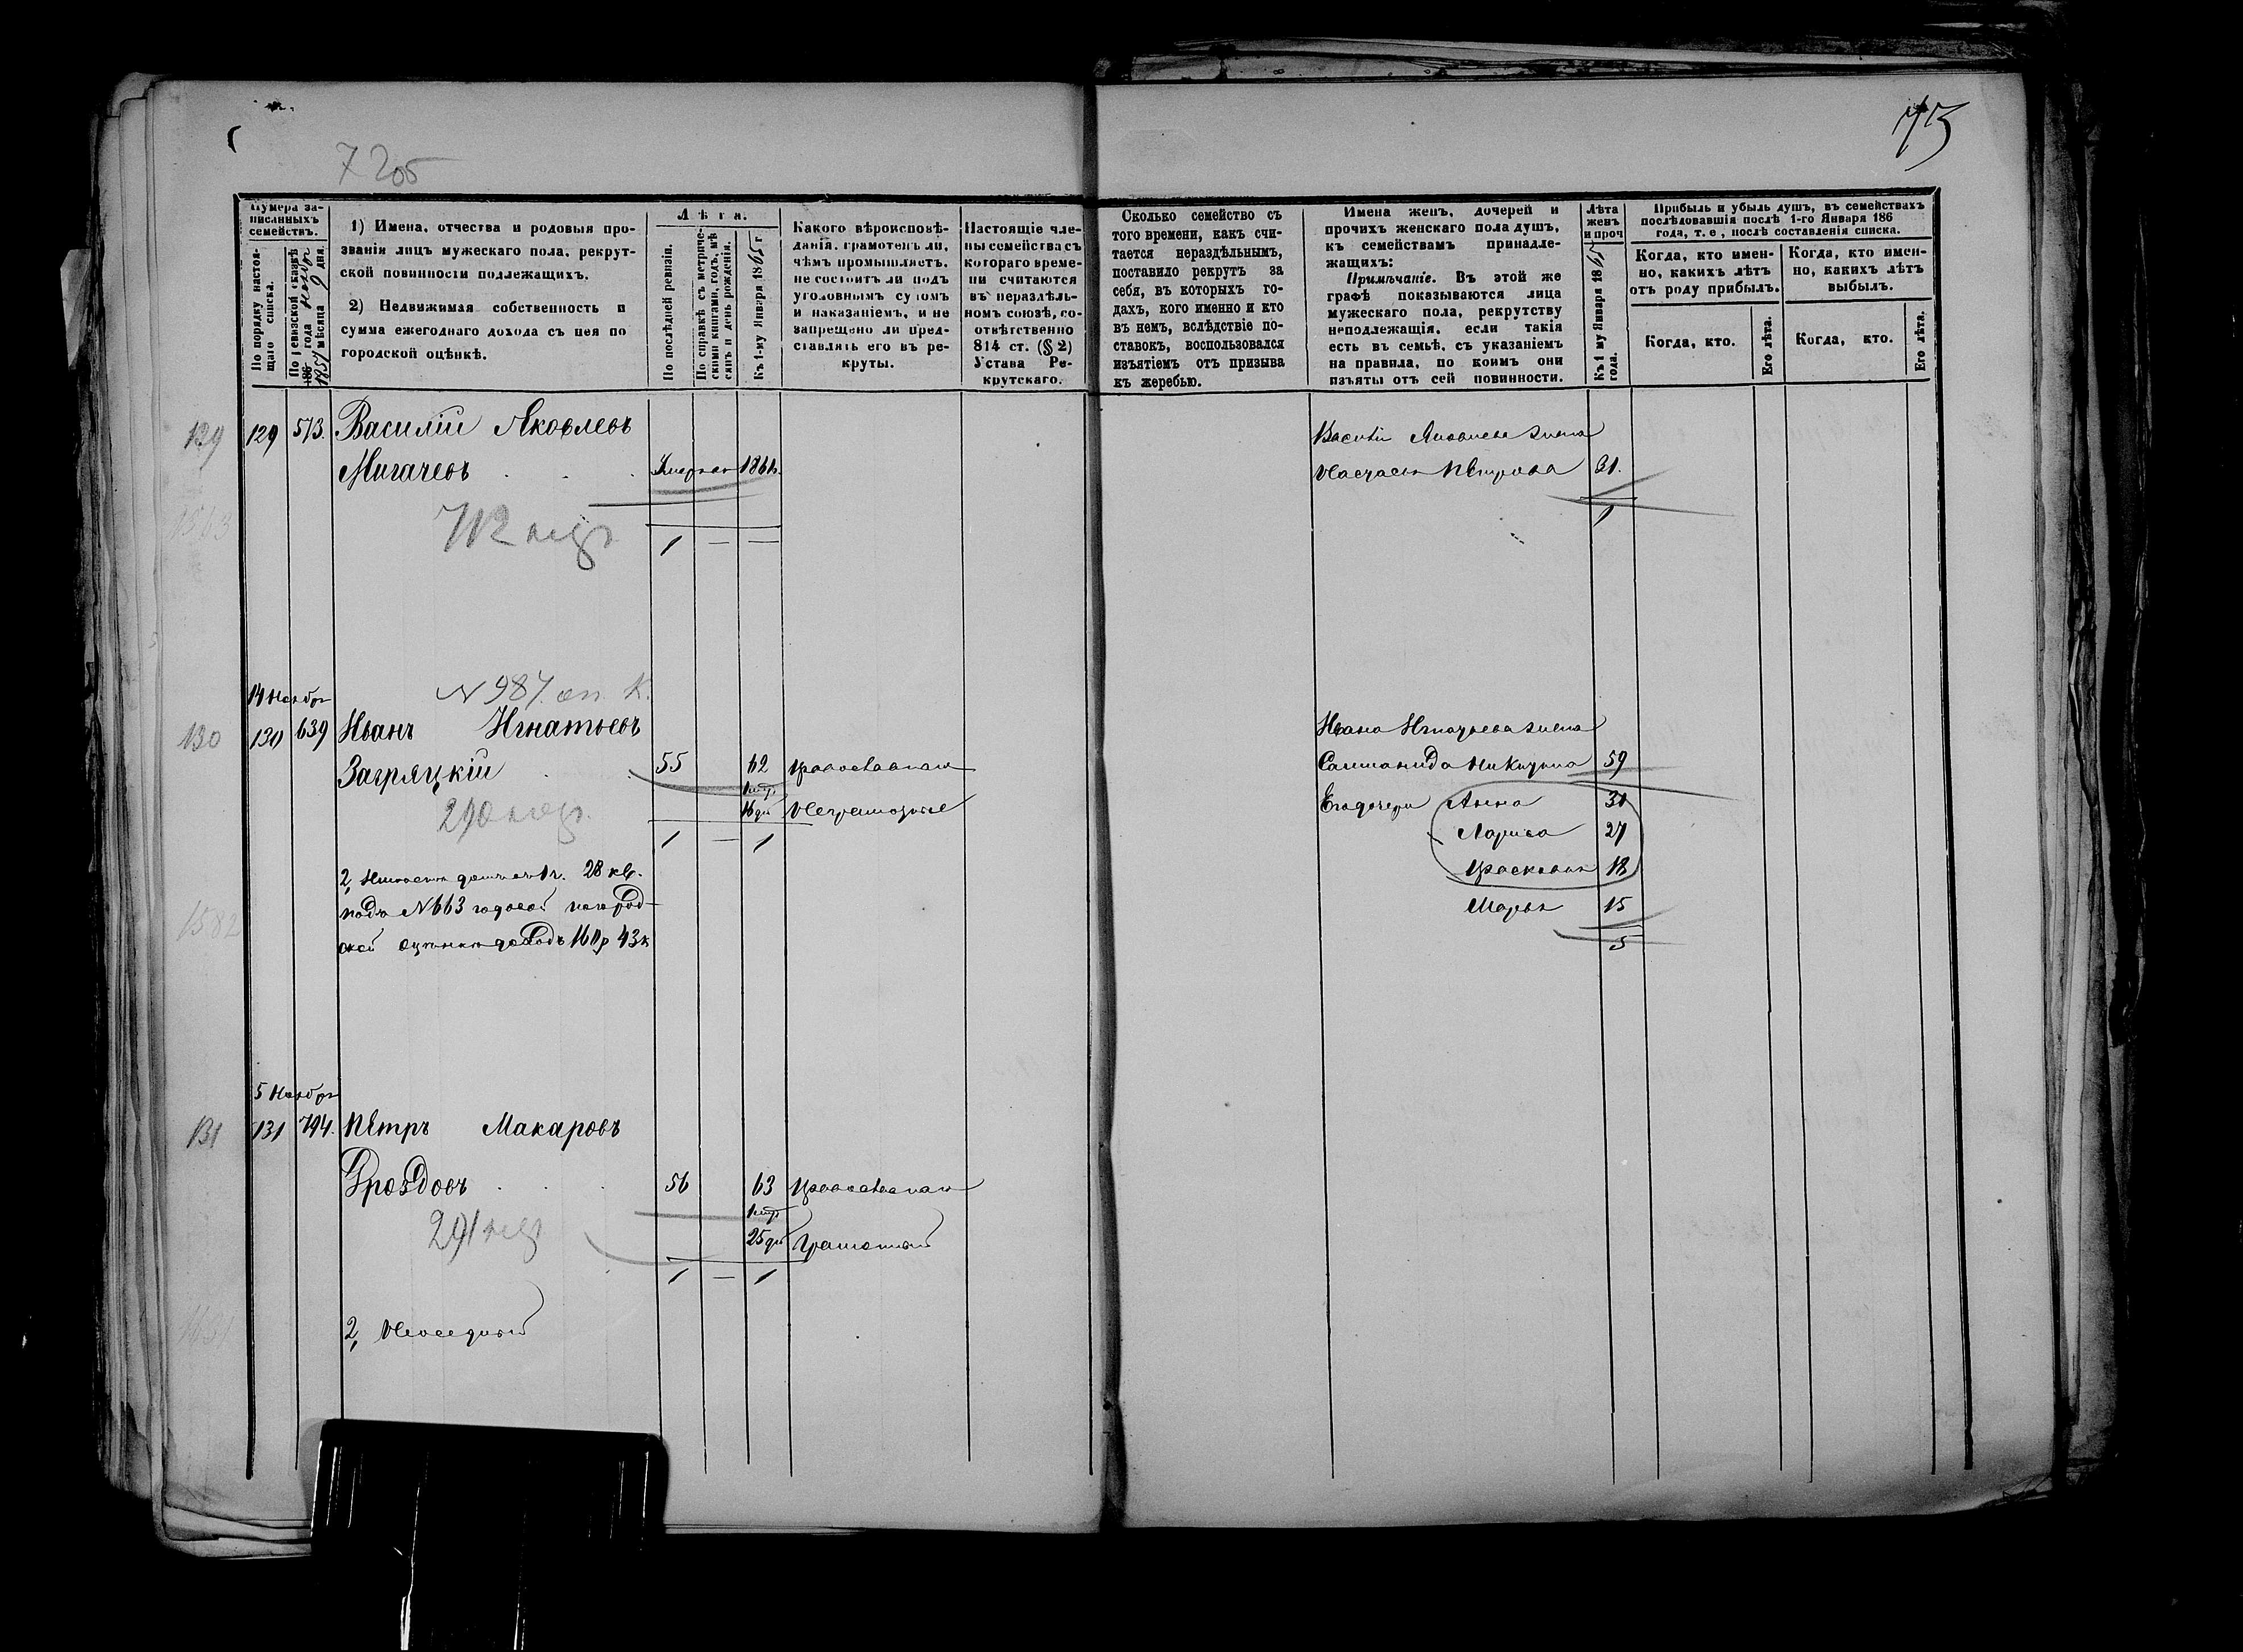 7 205
73
Нумера записанныхъ семействъ.
По порядку настоящаго списка.
По ревизской сказкѣ 186 года 1857 мѣсяца 9 дня.
1) Имена, отчества и родовыя прозванія лицъ мужескаго пола, рекрутской повинности подлежащихъ.
2) Недвижимая собственность и сумма ежегоднаго дохода съ нея по городской оцѣнкѣ.
Лѣта.
По послѣдней ревизіи.
По справкѣ съ метрическими книгами, годъ, мѣсяцъ и день рожденія.
Къ 1-му Января 1865 г.
Какого вѣроисповѣданія, грамотенъ ли, чѣмъ промышляетъ, не состоитъ ли подъ уголовнымъ судомъ и наказаніемъ, и не запрещено ли представлять его въ рекруты.
Настоящіе члены семейства съ котораго времени считаются въ нераздѣльномъ союзѣ, соотвѣтственно 814 ст. (§ 2) Устава Рекрутскаго.
Сколько семейство съ того времени, какъ считается нераздѣльнымъ, поставило рекрутъ за себя, въ которыхъ годахъ, кого именно и кто въ немъ, вслѣдствіе поставокъ, воспользовался изъятіемъ отъ призыва къ жеребью.
Имена женъ, дочерей и прочихъ женскаго пола душъ, къ семействамъ принадлежащихъ:
Примѣчаніе. Въ этой же графѣ показываются лица мужескаго пола, рекрутству неподлежащія, если такія есть въ семьѣ, съ указаніемъ на правила, по коимъ они изъяты отъ сей повинности.
Лѣта женъ и проч
Къ 1 му Января 1865 года.
Прибыль и убыль душъ, въ семействахъ послѣдовавшія послѣ 1-го Января 186 года, т. е., послѣ составленія списка.
Когда, кто именно, какихъ лѣтъ отъ роду прибылъ.
Когда, кто именно, какихъ лѣтъ выбылъ.
Когда, кто.
Его лѣта.
Когда, кто.
Его лѣта.
129 129 573. Василій Яковлевъ
Мигачевъ
712
1 — —
Василія Яковлева жена
Настасья Петрова 31.
1
14 Ноябр
N 987
130 130 639 Иванъ Игнатьевъ
Загряцкій 55 62 Православнаго
16 дн Неграмотный
290
1 — 1
2, 28 кв.
подъ N 663 годовой по город-
ской оцѣнкѣ доходъ 43 к
1582
Ивана Игнатьева жена
Саломанида Никитина 59
Его дочери Анна 31
Лариса 27
Прасковья 18
Марья 15
5
5 Ноябр
131 131 794. Петръ Макаровъ
Дроздовъ 56 63 Православнаго
25 дн Грамотный
291
1 — 1
2,